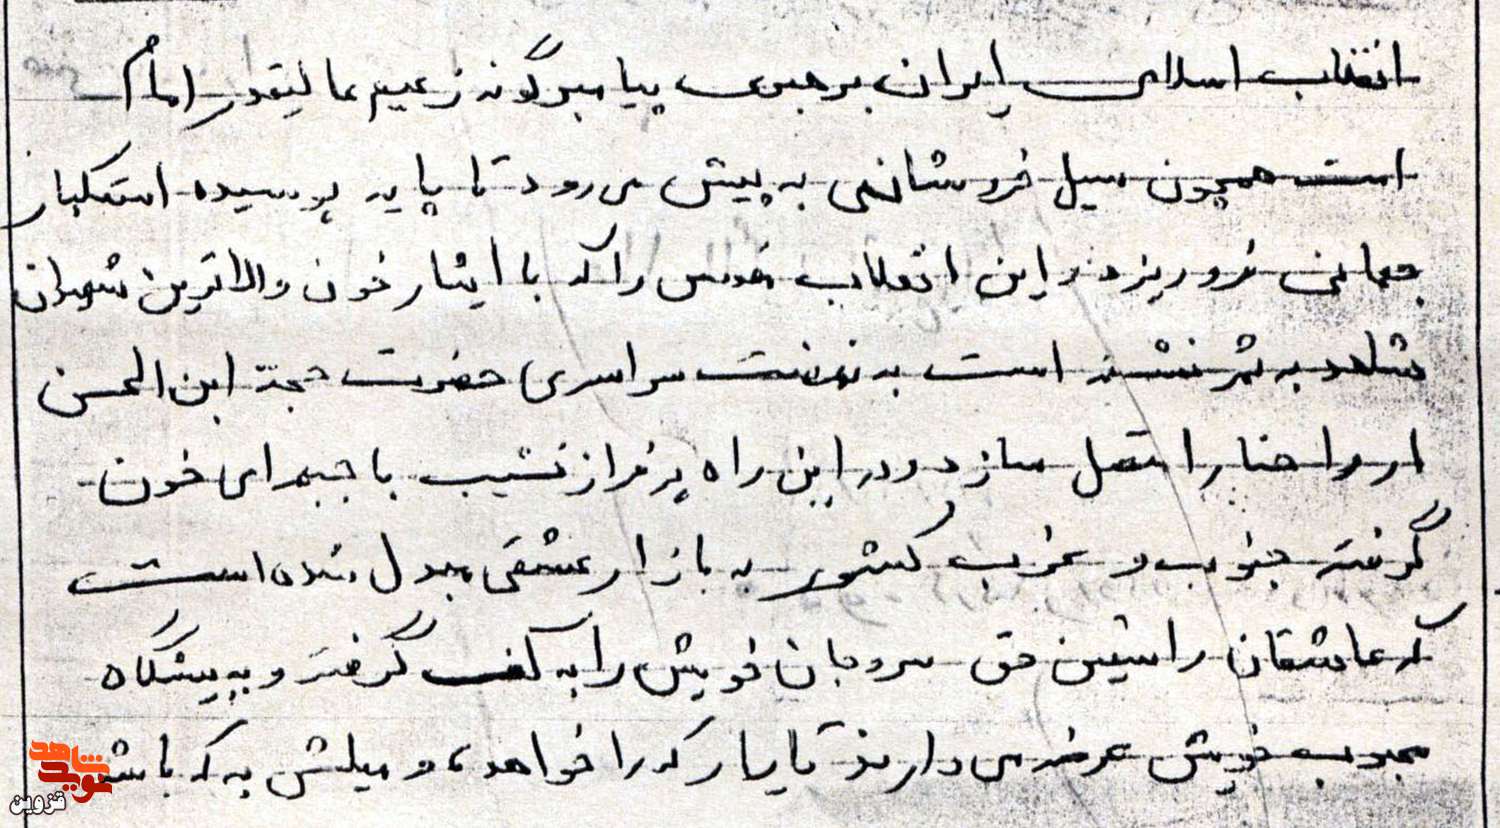 انقلاب اسلامی ایران برهبری پیامبرگونه زعیم عالیقدر امام
است همچون سیل خروشانی به پیش می رود تا پایه پوسیده استکبار
جهانی فرو ریزد و این انقلاب مقدس را که با ایثار خون والاترین شهیدان
شاهد به ثمر نشسته است به نهضت سراسری حضرت حجة ابن الحسن
ارواحنا را متصل سازد و در این راه پر فراز نشیب با جبهه ای خون
گرفته جنوب و غرب کشور به بازار عشقی مبدل شده است
که عاشقان راستین حق سر و جان خویش را به کف گرفته و به پیشگاه
محبوب خویش عرضه می دارند تا یار که را خواهد و میلش به که باشد
شاهد
نوید
قزوین